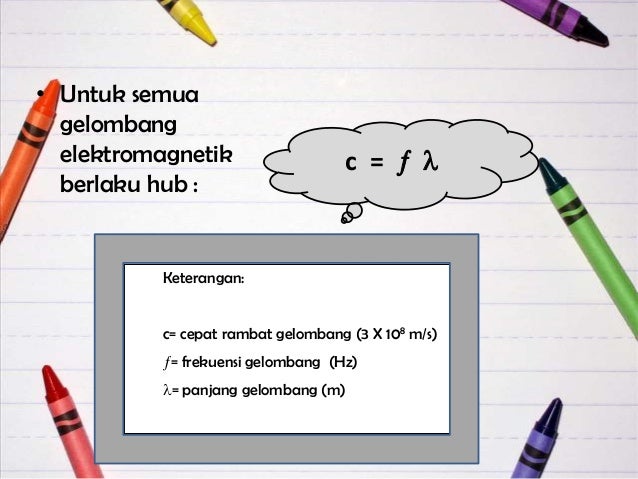 • Untuk semua
gelombang
elektromagnetik
berlaku hub :
c = f λ
Keterangan:
c= cepat rambat gelombang (3 X 10⁸ m/s)
f= frekuensi gelombang (Hz)
λ= panjang gelombang (m)